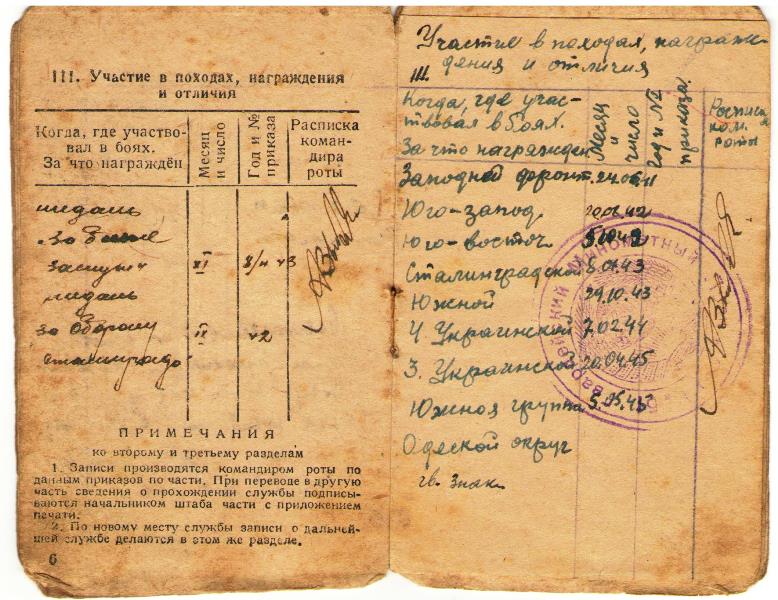 III. Участие в походах, награждения
и отличия
Когда, где участво-
вал в боях.
За что награждён
Месяц
и число
Год и №
приказа
Расписка
коман-
дира
роты
медаль
за
XI
8/н 43
медаль
за оборону
IX
42
Сталинграда
ПРИМЕЧАНИЯ
ко второму и третьему разделам
1. Записи производятся командиром роты по
данным приказов по части. При переводе в другую
часть сведения о прохождении службы подписы-
ваются начальником штаба части с приложением
печати.
2. По новому месту службы записи о дальней-
шей службе делаются в этом же разделе.
6
Участие в походах, награж-
дения и отличия
III.
Когда, где учас-
твовал в боях.
За что награжден
Месяц
и
число
Год и №
приказа.
Росписка
ком.
роты
Западной фронт. 24.06.41
Юго-запод 20.06.42
Юго-восточ
Сталинградской 8.01.43
Южной 29.10.43
4 Украинской 7.02.44
3. Украинской 20.04.45
Южноя группа 5.05.45
Одеской округ
гв. знак
гвардейский минометный